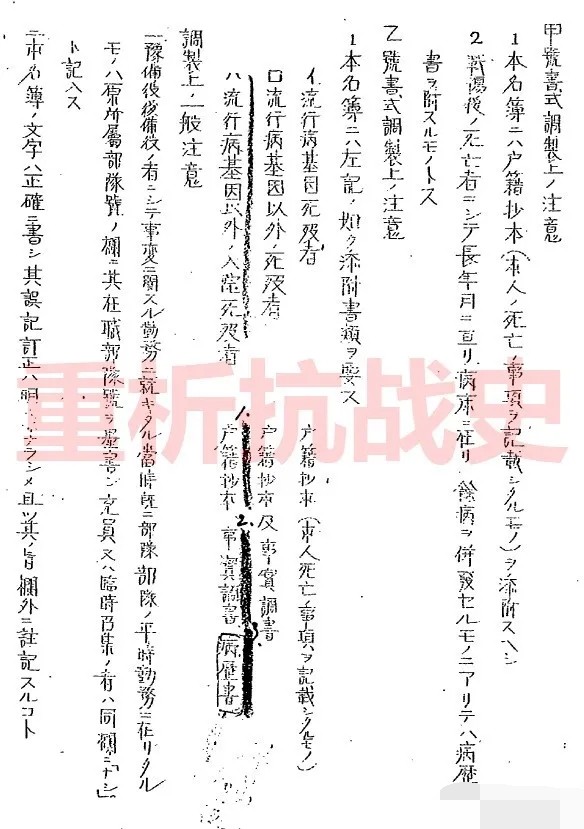 甲號書式調製上ノ注意
1 本名簿ニハ戸籍抄本(本人ノ死亡ノ事項ヲ記載シタルモノ)ヲ添附スヘシ
2 戰傷後ノ死亡者ニシテ長年月ニ亘リ病床ニ在リ餘病ヲ併發セルモノニアリテハ病歴
書ヲ附スルモノトス
乙號書式調製上ノ注意
1 本名簿ニハ左記ノ如ク添附書類ヲ要ス
イ 流行病基因死歿者 戸籍抄本(本人死亡ノ事項ヲ記載シタルモノ)
ロ 流行病基因以外ノ死歿者 戸籍抄本及事實調書
ハ 流行病基因以外ノ入院死歿者 1. 戸籍抄本 2. 事實調書 3. 病歴書
調製上ノ一般注意
一 豫備役後備役ノ者ニシテ事変ニ関スル勤務ニ就キタル當時既ニ部隊ノ平時勤務ニ在リタル
モノハ原所屬部隊號ノ欄ニ其在職部隊號ヲ墨書シ充員又ハ臨時召集ノ者ハ同欄ニ「ナシ」
ト記入ス
二 本名簿ノ文字ハ正確ニ書シ其誤記訂正ハ明 ナラシメ且ツ其ノ旨欄外ニ註記スルコト
重析抗战史